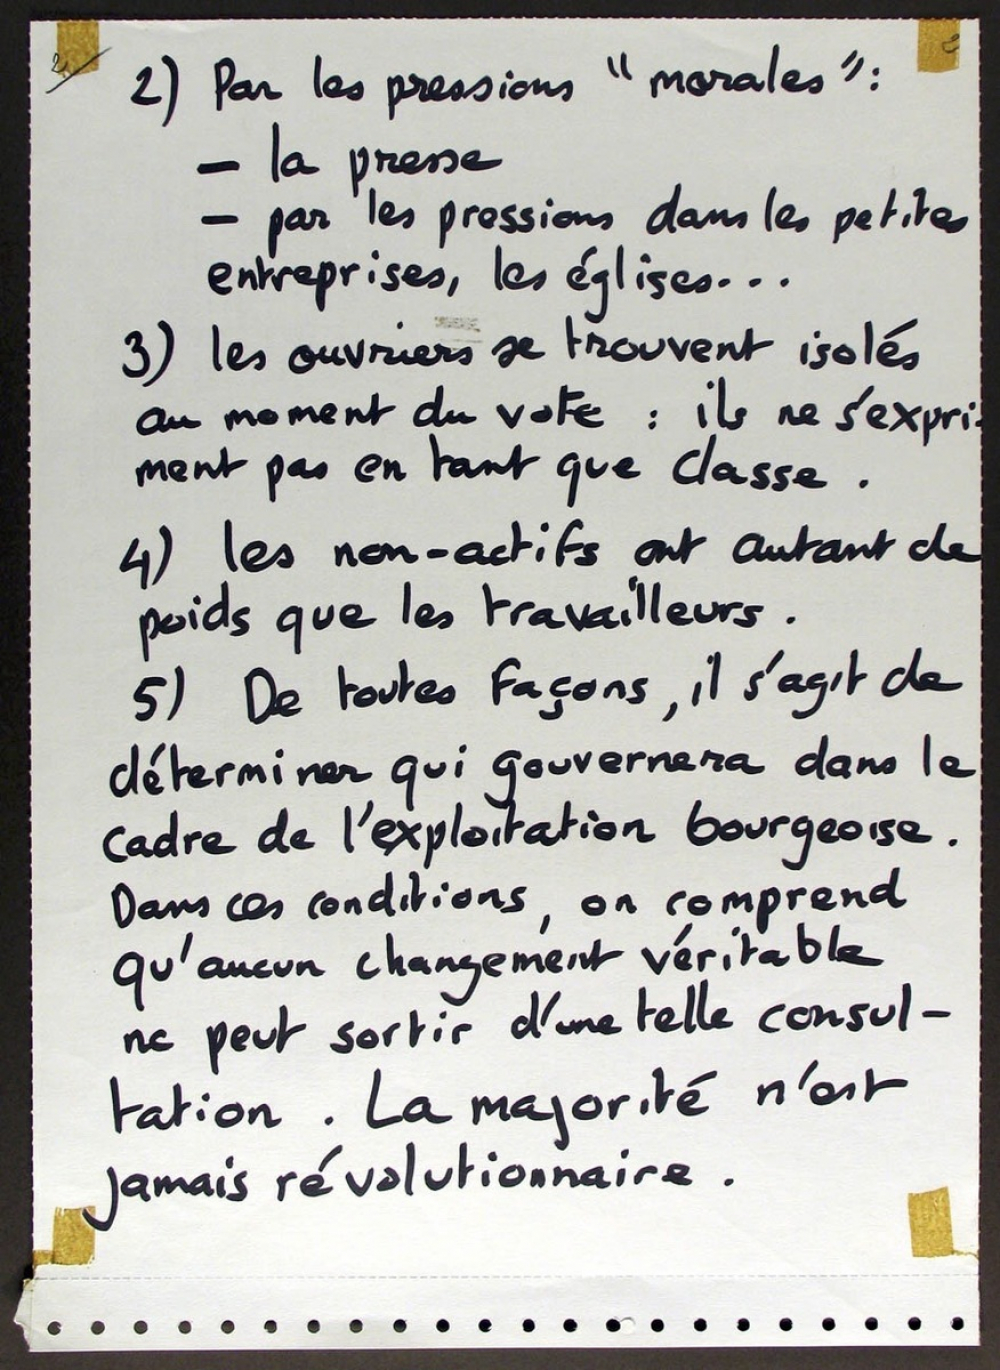 2
2) Par les pressions "morales":
- la presse
- par les pressions dans les petites
entreprises, les églises...
3) les ouvriers se trouvent isolés
au moment du vote : ils ne s'expri-
ment pas en tant que classe.
4) les non-actifs ont autant de
poids que les travailleurs.
5) De toutes façons, il s'agit de
déterminer qui gouvernera dans le
cadre de l'exploitation bourgeoise.
Dans ces conditions, on comprend
qu'aucun changement véritable
ne peut sortir d'une telle consul-
tation. La majorité n'est
jamais révolutionnaire.